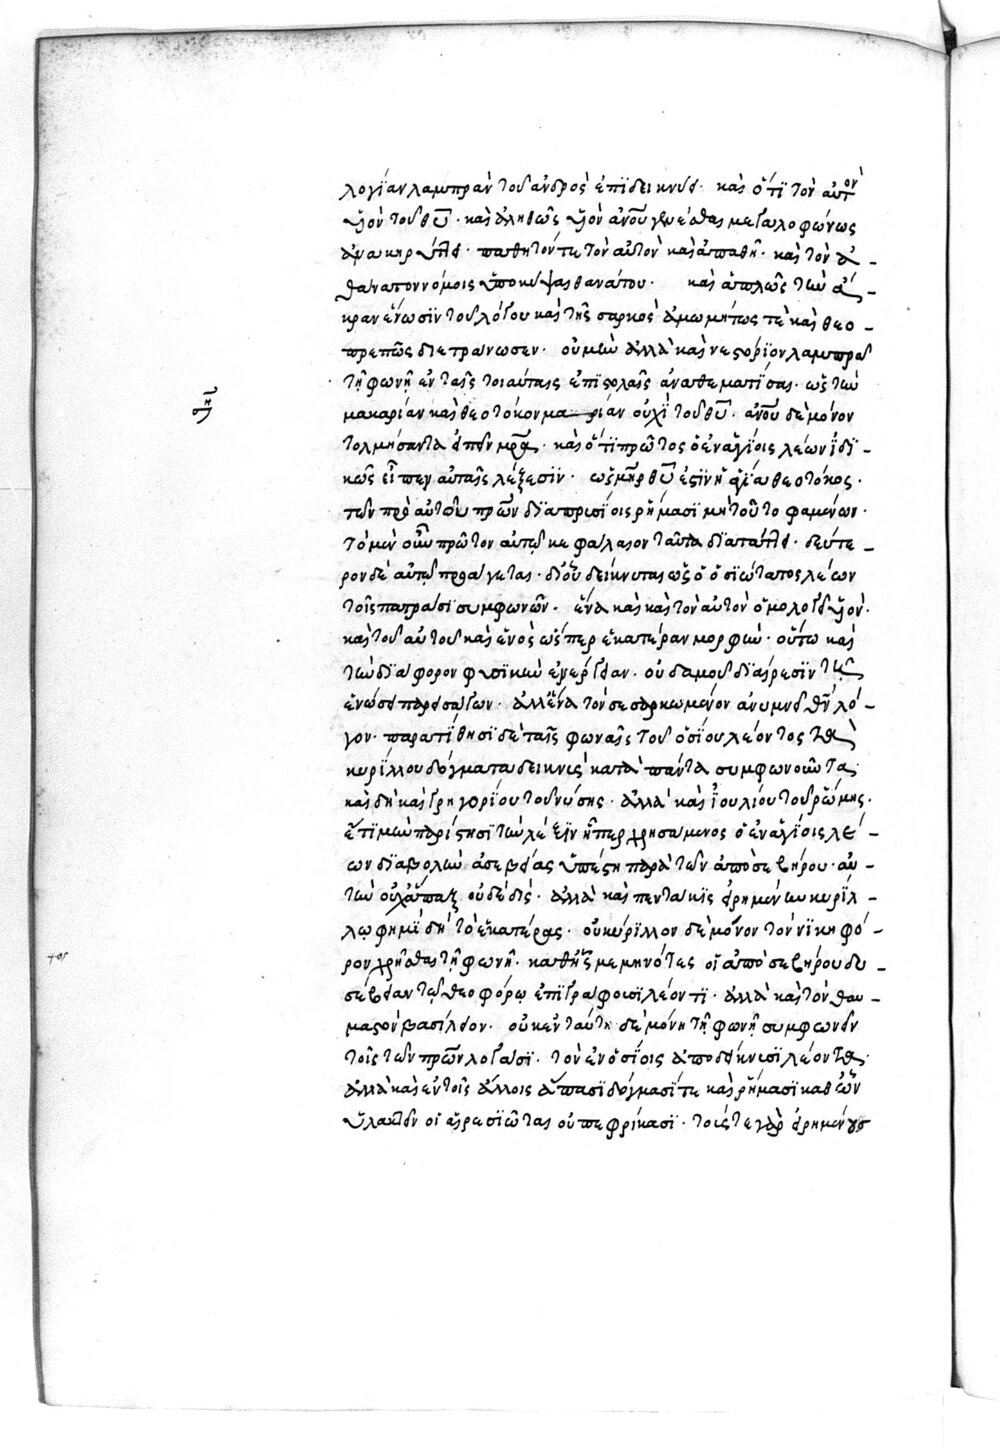 λογίαν λαμπρὰν τοῦ ἀνδρὸς ἐπιδεικνυσ· καὶ ὅτι τὸν αὐτὸν
υἱὸν τοῦ θυ· καὶ ἀληθῶς υἱὸν ἀνου γενέσθαι μεγαλοφώνως
ἀνακηρύττει· παθητόν τε τὸν αὐτὸν καὶ ἀπαθῆ· καὶ τὸν ἀ-
θάνατον νόμοις ὑποκύψαι θανάτου· καὶ ἁπλῶς τὴν ἄ-
κραν ἕνωσιν τοῦ λόγου καὶ τῆς σαρκὸς ἀμωμήτως τὲ καὶ θεο-
πρεπῶς διετράνωσεν· οὐ μὴν ἀλλὰ καὶ νεστόριον λαμπρᾶ
τῇ φωνῇ ἐν ταῖς τοιαύταις ἐπιστολαῖς ἀναθεματίσας· ὡς τὴν
μακαρίαν καὶ θεοτόκον μαρίαν οὐχὶ τοῦ θυ· ἀνου δὲ μόνον
τολμήσαντα εἰπεῖν μρα· καὶ ὅτι πρῶτος ὁ ἐν ἁγίοις λέων ἰδι-
κῶς εἶπεν αὐταῖς λέξεσιν· ὡς μηρ θυ ἐστὶν ἡ ἁγία θεοτόκος·
τῶν πρὸ αὐτοῦ πρων διαπρυσίοις ῥήμασι μὴ τοῦτο φαμένων·
τὸ μὲν οὖν πρῶτον αὐτῷ κεφάλαιον ταῦτα διαπαίνει· δεύτε-
ρον δὲ αὐτῷ προάγεται· δι' οὗ δείκνυται ὡς ὁ ὁσιώτατος λέων
τοῖς πατράσι συμφωνῶν· ἕνα καὶ κατὸν αὐτὸν ὁμολογεῖ υἱόν·
καὶ τοῦ αὐτοῦ καὶ ἑνὸς ὥσπερ ἑκατέραν μορφὴν· οὕτω καὶ
τὴν διάφορον φυσικὴν ἐνέργειαν· οὐδαμοῦ διαίρεσιν τῆ
ἑνώσει παρεισάγων· ἀλλ' ἕνα τὸν σεσαρκωμένον ἀνυμνεῖ θν λό-
γον· παρατίθησι δὲ ταῖς φωναῖς τοῦ ὁσίου λέοντος τὰ
κυρίλλου δόγματα δεικνὺς κατὰ πάντα συμφωνοῦντα·
καὶ δὴ καὶ γρηγορίου τοῦ νύσης· ἀλλὰ καὶ ἰουλίου τοῦ ῥώμης·
ἔτι μὴν παρίστησι τὴν λέξιν ἥπερ χρησάμενος ὁ ἐν ἁγίοις λέ-
ων διαβολὴν ἀσεβείας ὑπέστη παρὰ τῶν ἀπὸ σεβήρου· αὐ-
τὴν οὐχ ἅπαξ οὐδὲ δίς· ἀλλὰ καὶ πεντάκις εἰρημένην κυρίλ-
λῳ φημὶ δὴ τὸ ἑκατέρας· οὐ κύριλλον δὲ μόνον τὸν νικηφό-
ρον χρῆσθαι τῇ φωνῇ· καθ' ἧς μεμηνότες οἱ ἀπὸ σεβήρου δυ-
σέβειαν τῷ θεοφόρῳ ἐπιγράφουσι λέοντι· ἀλλὰ καὶ τὸν θαυ-
μαστὸν βασίλειον· οὐκ ἐν ταύτῃ δὲ μόνῃ τῇ φωνῇ συμφωνεῖν
τοῖς τῶν πρων λόγοισι· τὸν ἐν ὁσίοις ἀποδείκνυσι λέοντα·
ἀλλὰ καὶ ἐν τοῖς ἄλλοις ἅπασι δόγμασί τε καὶ ῥήμασι καθ' ὧν
ὑλακτεῖν οἱ αἱρεσιῶται οὐ πεφρίκασι· τοῖς τε γὰρ εἰρημένοις